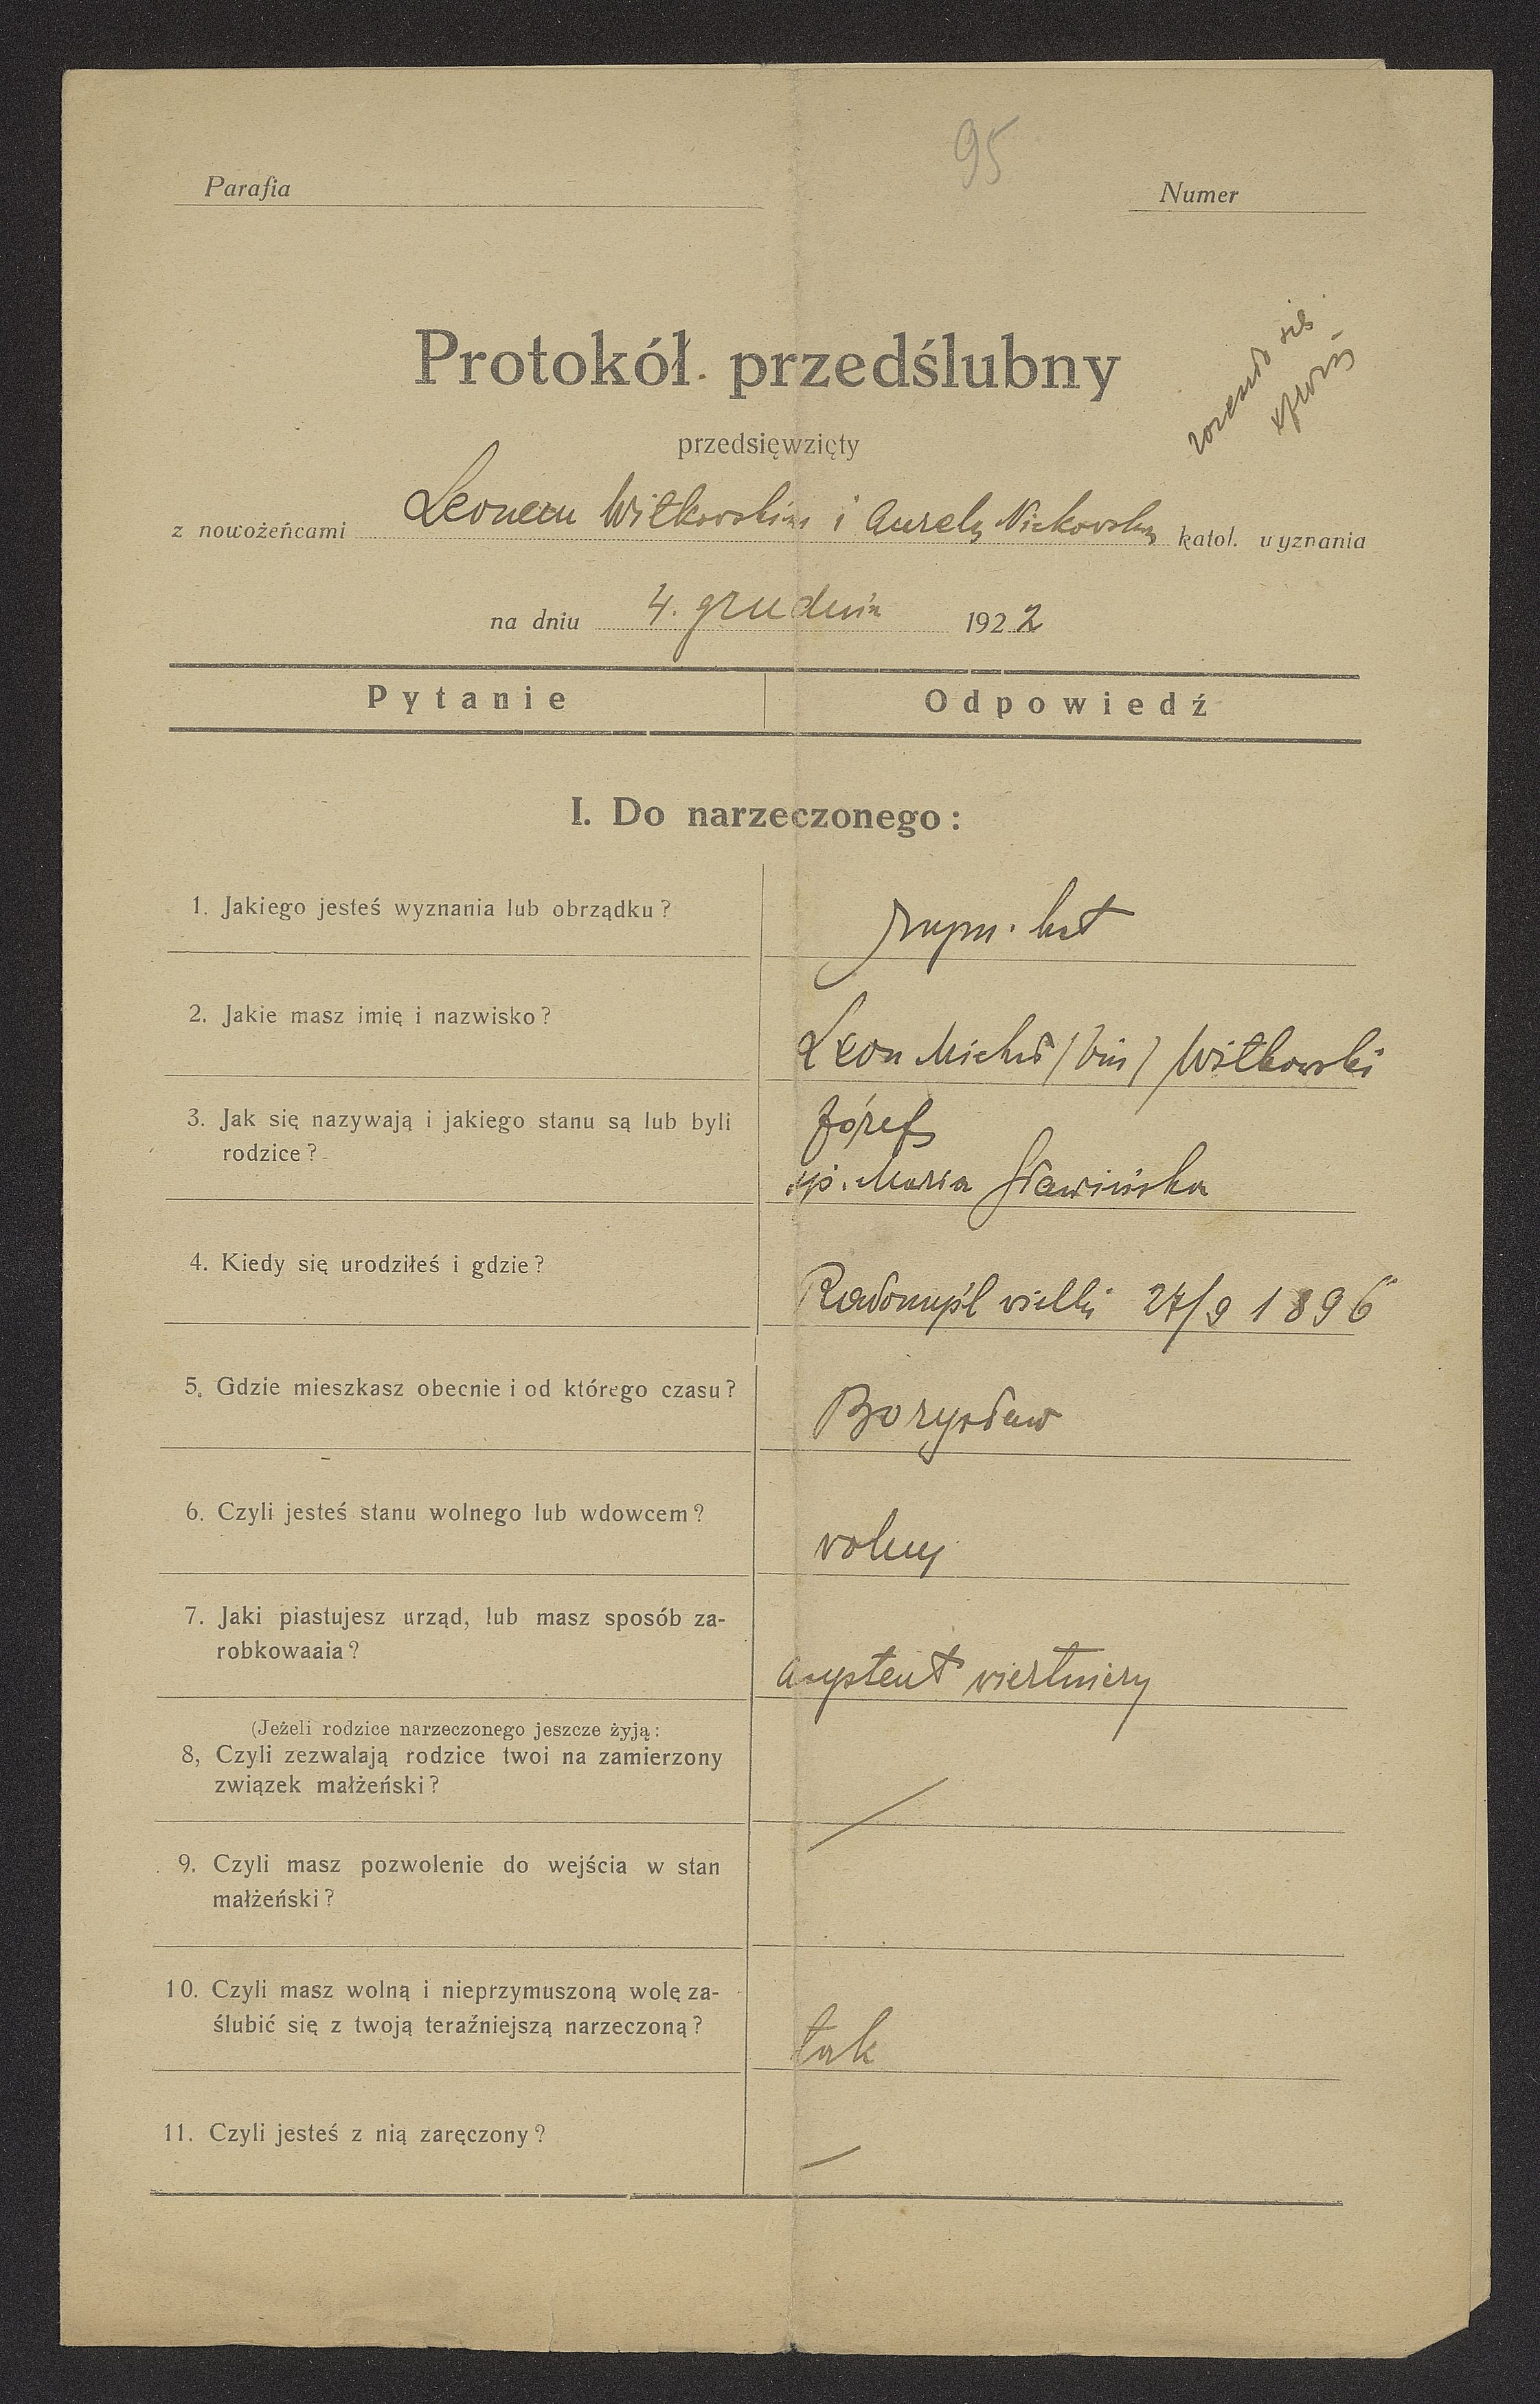 95
Parafia
Numer
Protokół przedślubny
przedsięwzięty
z nowożeńcami Leonem Witkowskim i Aurelą Nickowską katol. wyznania
na dniu 4. grudnia 1922
Pytanie Odpowiedź
I. Do narzeczonego:
1. Jakiego jesteś wyznania lub obrządku?
rzym. kat
2. Jakie masz imię i nazwisko?
Leon Michał /bim/ Witkowski
3. Jak się nazywają i jakiego stanu są lub byli
rodzice?
Józef
śp. Maria Sławińska
4. Kiedy się urodziłeś i gdzie?
Radomyśl wielki 27/9 1896
5. Gdzie mieszkasz obecnie i od którego czasu?
Borysław
6. Czyli jesteś stanu wolnego lub wdowcem?
wolny
7. Jaki piastujesz urząd, lub masz sposób za-
robkowaaia?
asystent wiertniczy
(Jeżeli rodzice narzeczonego jeszcze żyją:
8, Czyli zezwalają rodzice twoi na zamierzony
związek małżeński?
9. Czyli masz pozwolenie do wejścia w stan
małżeński?
10. Czyli masz wolną i nieprzymuszoną wolę za-
ślubić się z twoją teraźniejszą narzeczoną?
tak
11. Czyli jesteś z nią zaręczony?